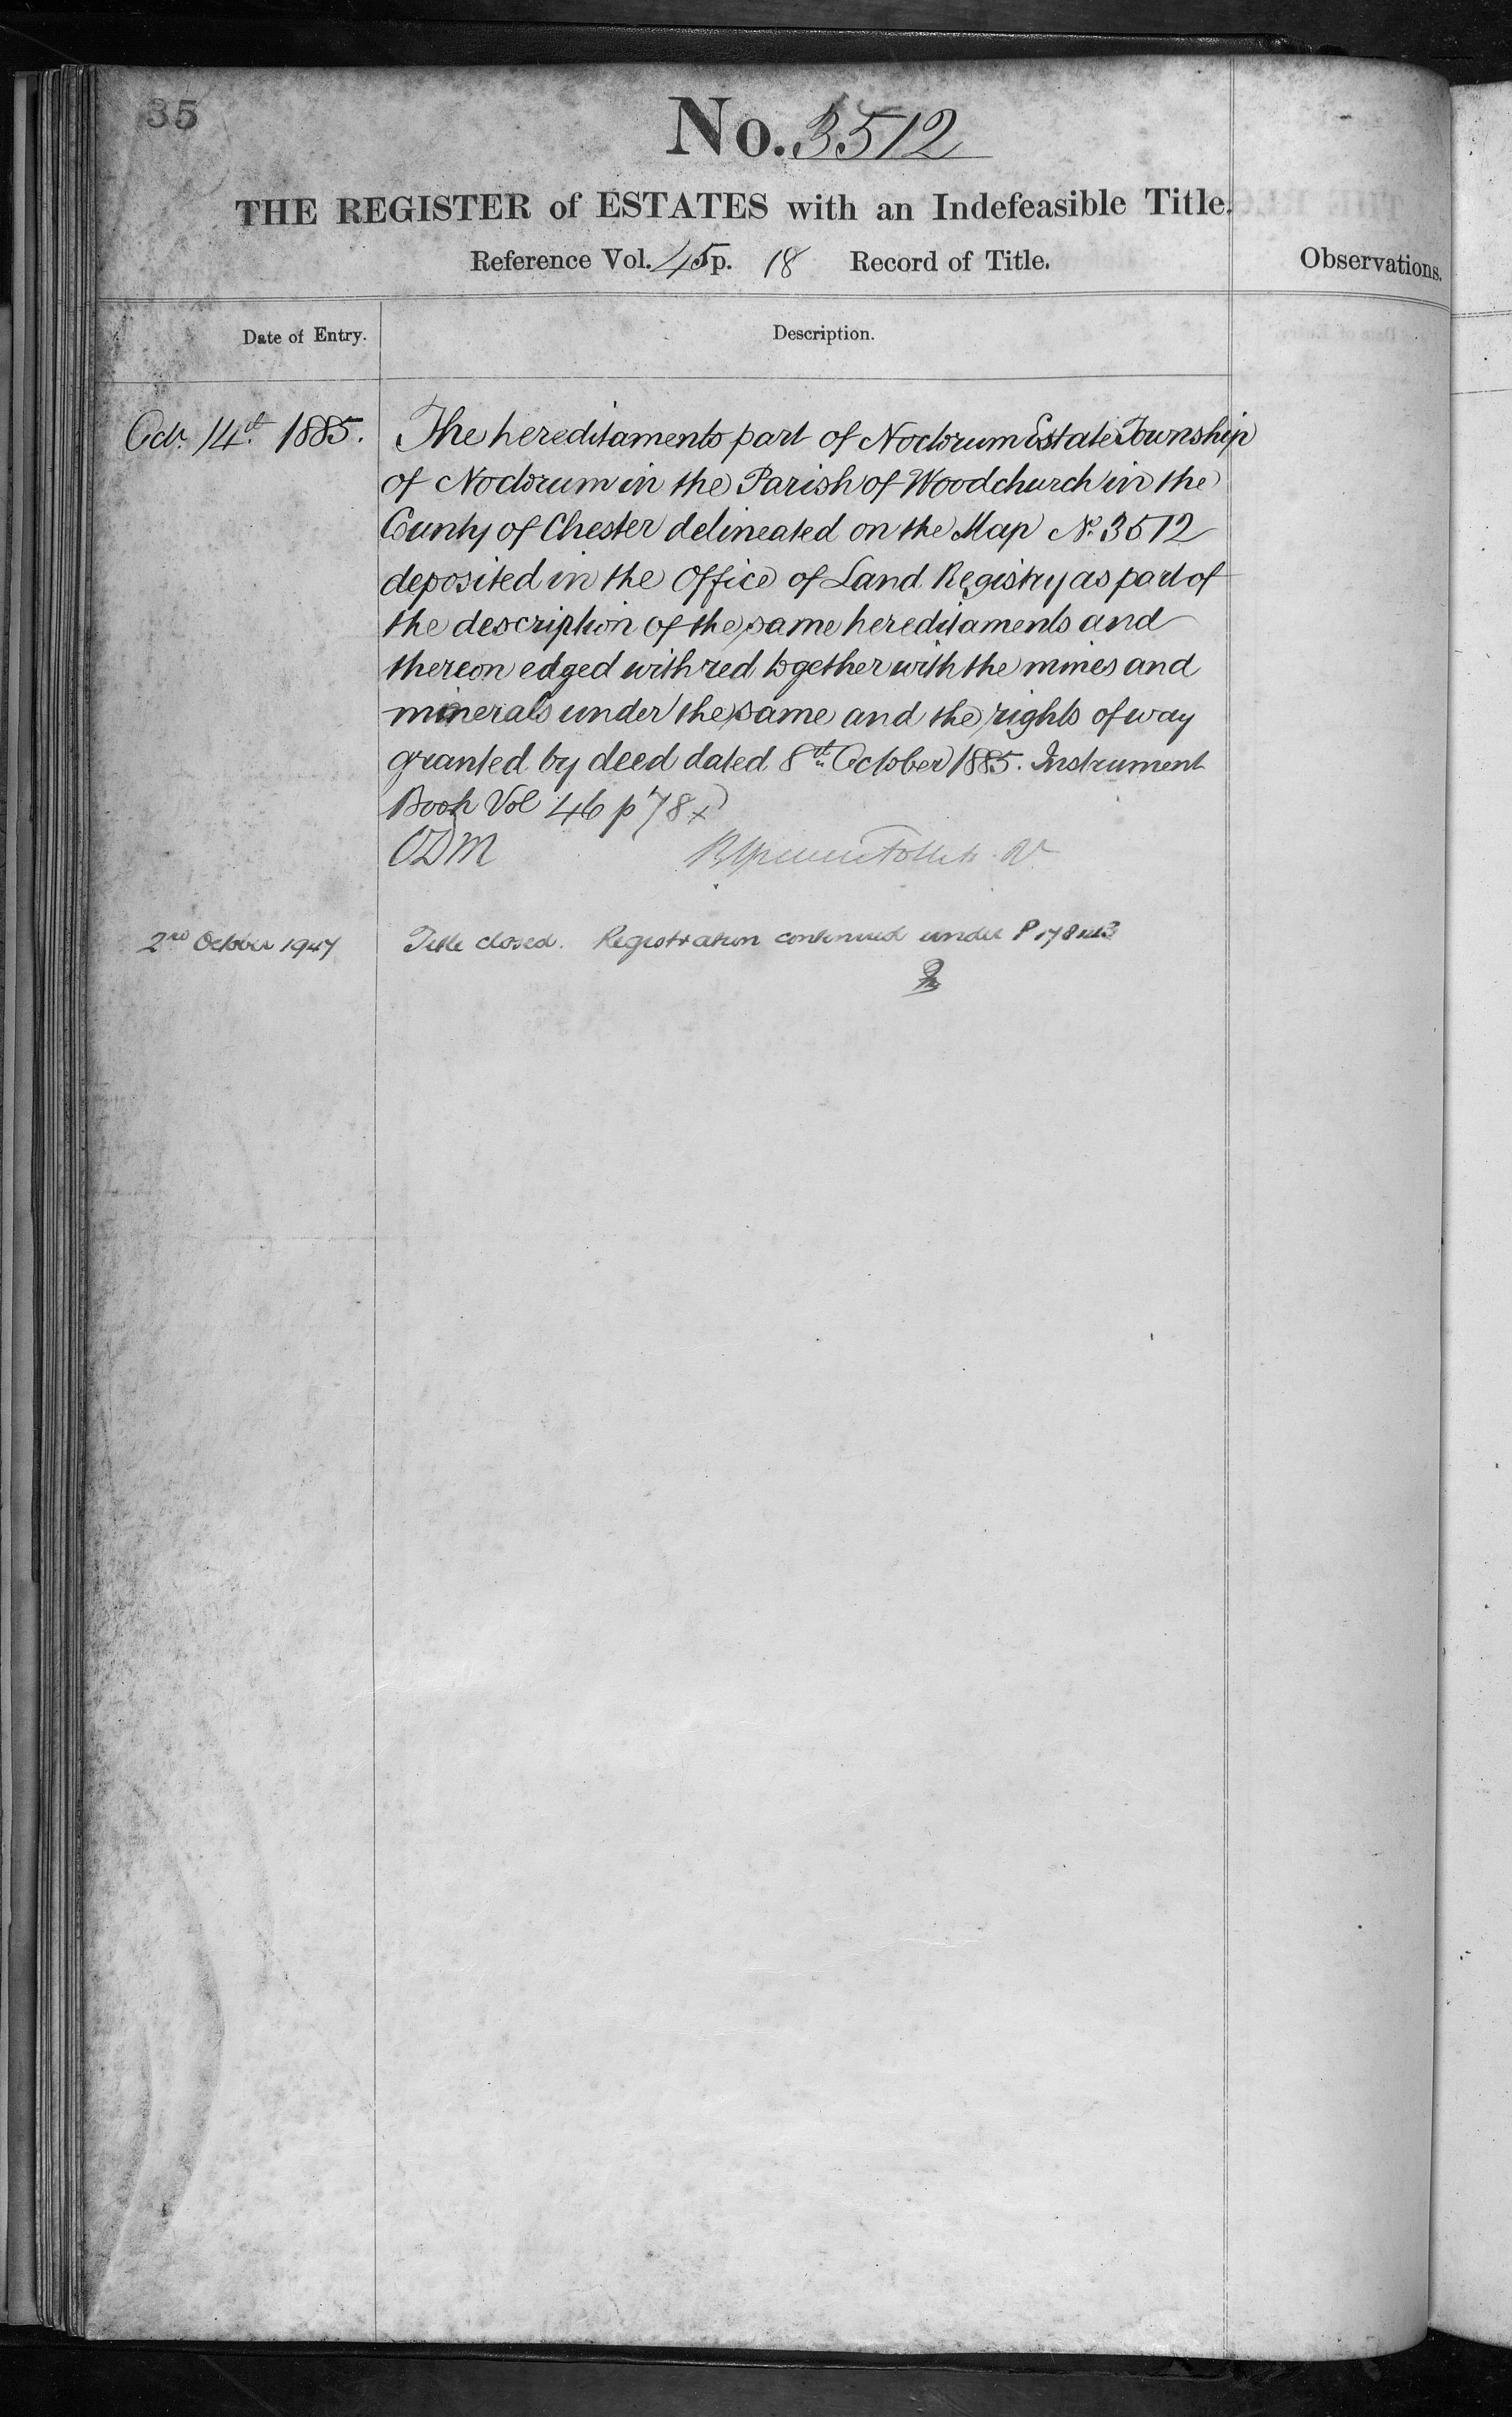 35
No. 3512
THE REGISTER of ESTATES with an Indefeasible Title.
Reference Vol. 45 p. 18 Record of Title.
Observations.
Date of Entry.
Description.
Oct. 14th 1885.
The hereditaments part of Noctorum Estate Township
of Noctorum in the Parish of Woodchurch in the
County of Chester delineated on the Map No. 3512
deposited in the Office of Land Registry as part of
the description of the same hereditaments and
thereon edged with red together with the mines and
minerals under the same and the rights of way
granted by deed dated 8th October 1885. Instrument
Book Vol 46 p 78
2nd October 1947
Title closed. Registration continued under P